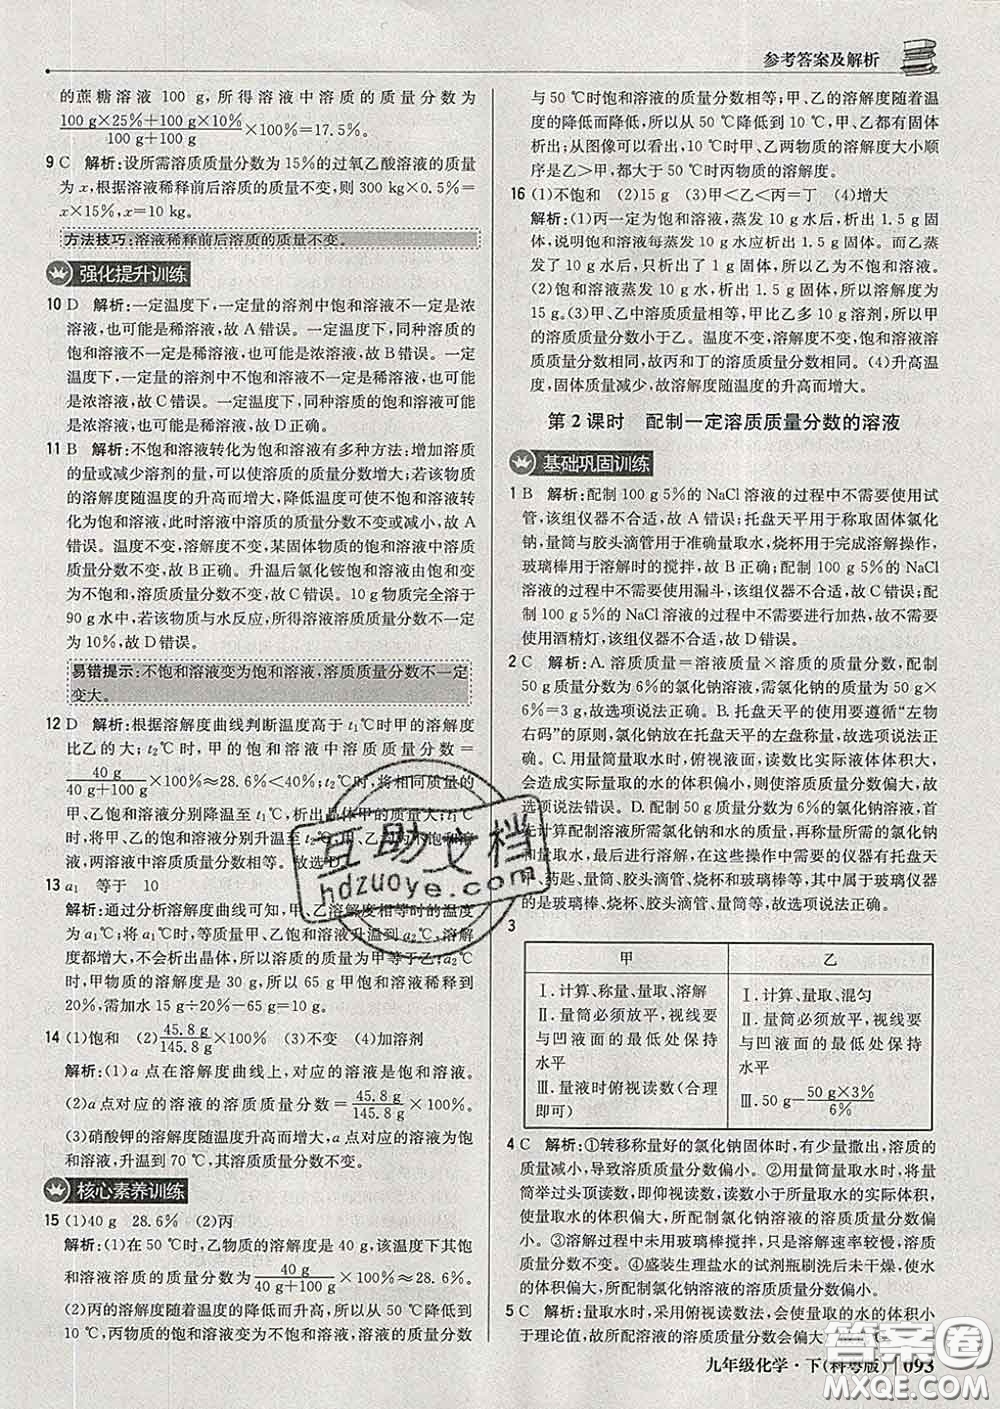 参考答案及解析
的蔗糖溶液 100 g,所得溶液中溶质的质量分数为
100 g×25%+100 g×10%
100 g+100 g
×100%=17.5%。
9 C 解析:设所需溶质质量分数为15%的过氧乙酸溶液的质量
为 x,根据溶液稀释前后溶质的质量不变,则 300 kg×0.5%=
x×15%,x=10 kg。
方法技巧:溶液稀释前后溶质的质量不变。
强化提升训练
10 D 解析:一定温度下,一定量的溶剂中饱和溶液不一定是浓
溶液,也可能是稀溶液,故 A 错误。一定温度下,同种溶质的
饱和溶液不一定是稀溶液,也可能是浓溶液,故 B 错误。一定
温度下,一定量的溶剂中不饱和溶液不一定是稀溶液,也可能
是浓溶液,故 C 错误。一定温度下,同种溶质的不饱和溶液可能
是浓溶液,也可能是稀溶液,故 D 正确。
11 B 解析:不饱和溶液转化为饱和溶液有多种方法:增加溶质
的量或减少溶剂的量,可以使溶质的质量分数变大;若该物质
的溶解度随温度的升高而增大,降低温度可使不饱和溶液转
化为饱和溶液,此时溶液中溶质的质量分数不变或减小,故 A
错误。温度不变,溶解度不变,某固体物质的饱和溶液的溶质
质量分数不变,故 B 正确。升温后氯化铵饱和溶液由饱和变
为不饱和,溶质质量分数不变,故 C 错误。10 g 物质完全溶于
90 g 水中,若该物质与水反应,所得溶液溶质质量分数不一定
为 10%,故 D 错误。
易错提示:不饱和溶液变为饱和溶液,溶质质量分数不一定
变大。
12 D 解析:根据溶解度曲线判断温度高于 t₁℃时甲的溶解度
比乙的大;t₂℃时,甲的饱和溶液中溶质质量分数=
40 g
40 g+100 g
×100%≈28.6%<40%;t₂℃时,将相同质量的
甲、乙饱和溶液分别降温至 t₁℃,析出晶体甲的质量大;t₁℃
时,将甲、乙的饱和溶液分别升温至 t₂℃,甲、乙均为不饱和溶
液,两溶液中溶质质量分数相等。故选 D。
13 a₁ 等于 10
解析:通过分析溶解度曲线可知,甲、乙溶解度相等时的温度
为 a₁℃;将 a₁℃时,等质量甲、乙饱和溶液升温到 a₂℃,溶解
度都增大,不会析出晶体,所以溶液的质量甲等于乙;a₂℃
时,甲物质的溶解度是 30 g,所以 65 g 甲溶液稀释到
20%,需加水 15 g÷20%-65 g=10 g。
14 (1)饱和 (2)
45.8 g
145.8 g
×100% (3)不变 (4)加溶剂
解析:(1)a 点在溶解度曲线上,对应的溶液是饱和溶液。
(2)a 点对应的溶液的溶质质量分数=
45.8 g
145.8 g
×100%。
(3)硝酸钾的溶解度随温度升高而增大,a 点对应的溶液为饱
和溶液,升温到 70 ℃,其溶质质量分数不变。
核心素养训练
15 (1)40 g 28.6% (2)丙
解析:(1)在 50 ℃时,乙物质的溶解度是 40 g,该温度下其饱
和溶液溶质的质量分数为
40 g
40 g+100 g
×100%≈28.6%。
(2)丙的溶解度随温度的降低而升高,所以从 50 ℃降低到
10 ℃,丙物质的溶液变为不饱和溶液,溶质的质量分数不变,
与 50 ℃时饱和溶液的质量分数相等;甲、乙的溶解度随着温
度的降低而降低,所以从 50 ℃降低到 10 ℃,甲、乙都有固体
析出;从图像可以看出,10 ℃时甲、乙两物质的溶解度大小顺
序是乙>甲,都大于 50 ℃时丙物质的溶解度。
16 (1)不饱和 (2)15 g (3)甲<乙<丙=丁 (4)增大
解析:(1)丙一定为饱和溶液,蒸发 10 g 水后,析出 1.5 g 固
体,所以饱和溶液每蒸发 10 g 水应析出 1.5 g 固体。而乙蒸
发 10 g 水后,只析出了 1 g 固体,所以乙为不饱和溶液。
(2)饱和溶液蒸发 10 g 水析出 1.5 g 固体,所以溶质质量为
15 g。(3)甲、乙中溶质质量相等,甲比乙多 10 g 溶剂,所以甲
的溶质质量分数小于乙。温度不变,溶解度不变,饱和溶液溶
质质量分数相同,故丙和丁的溶质质量分数相同。(4)升高温
度,固体质量减少,故溶解度随温度的升高而增大。
第 2 课时 配制一定溶质质量分数的溶液
基础巩固训练
1 B 解析:配制 100 g 5%的 NaCl 溶液的过程中不需要使用试
管,该组仪器不合适,故 A 错误;托盘天平用于称取固体氯化
钠,量筒与胶头滴管用于准确量取水,烧杯用于完成溶解操作,
玻璃棒用于溶解时的搅拌,故 B 正确;配制 100 g 5%的 NaCl
溶液的过程中不需要使用漏斗,该组仪器不合适,故 C 错误;配
制 100 g 5%的 NaCl 溶液的过程中不需要进行加热,故不需要
使用酒精灯,该组仪器不合适,故 D 错误。
2 C 解析:A. 溶质质量=溶液质量×溶质的质量分数,配制
50 g质量分数为6%的氯化钠溶液,需氯化钠的质量=50 g×
6%=3 g,故选项说法正确。B. 托盘天平的使用要遵循“左物
右码”的原则,氯化钠放在托盘天平的左盘称量,故选项说法正
确。C. 用量筒量取水时,俯视液面,读数比实际液体体积大,
会造成实际量取的水的体积偏小,则使溶质质量分数偏大,故
选项说法错误。D. 配制 50 g 质量分数为 6%的氯化钠溶液,首
先计算配制溶液所需氯化钠和水的质量,再称量所需的氯化钠
和量取水,最后进行溶解,在这些操作中需要的仪器有托盘天
平、药匙、量筒、胶头滴管、烧杯和玻璃棒等,其中属于玻璃仪器
的是玻璃棒、烧杯、胶头滴管、量筒等,故选项说法正确。
3
甲 乙
Ⅰ. 计算、称量、量取、溶解
Ⅱ. 量筒必须放平,视线要
与凹液面的最低处保持
水平
Ⅲ. 量液时俯视读数(合理
即可)
Ⅰ. 计算、量取、混匀
Ⅱ. 量筒必须放平,视线要
与凹液面的最低处保持
水平
Ⅲ. 50 g-
50 g×3%
6%
4 C 解析:①转移称量好的氯化钠固体时,有少量撒出,溶质的
质量减小,导致溶质质量分数偏小。②用量筒量取水时,将量
筒举过头顶读数,即仰视读数,读数小于所量取水的实际体积,
使量取水的体积偏大,所配制氯化钠溶液的溶质质量分数偏
小。③溶解过程中未用玻璃棒搅拌,只是溶解速率较慢,溶质
质量分数不变。④盛装生理盐水的试剂瓶刷洗后未干燥,使水
的体积偏大,配制氯化钠溶液的溶质质量分数偏小。
5 C 解析:量取水时,采用俯视读数法,会使量取水的体积小
于理论值,故所配溶液的溶质质量分数会偏大
九年级化学·下(科粤版) 093
互助文档
hdzuoye.com
答案圈
MXQE.COM